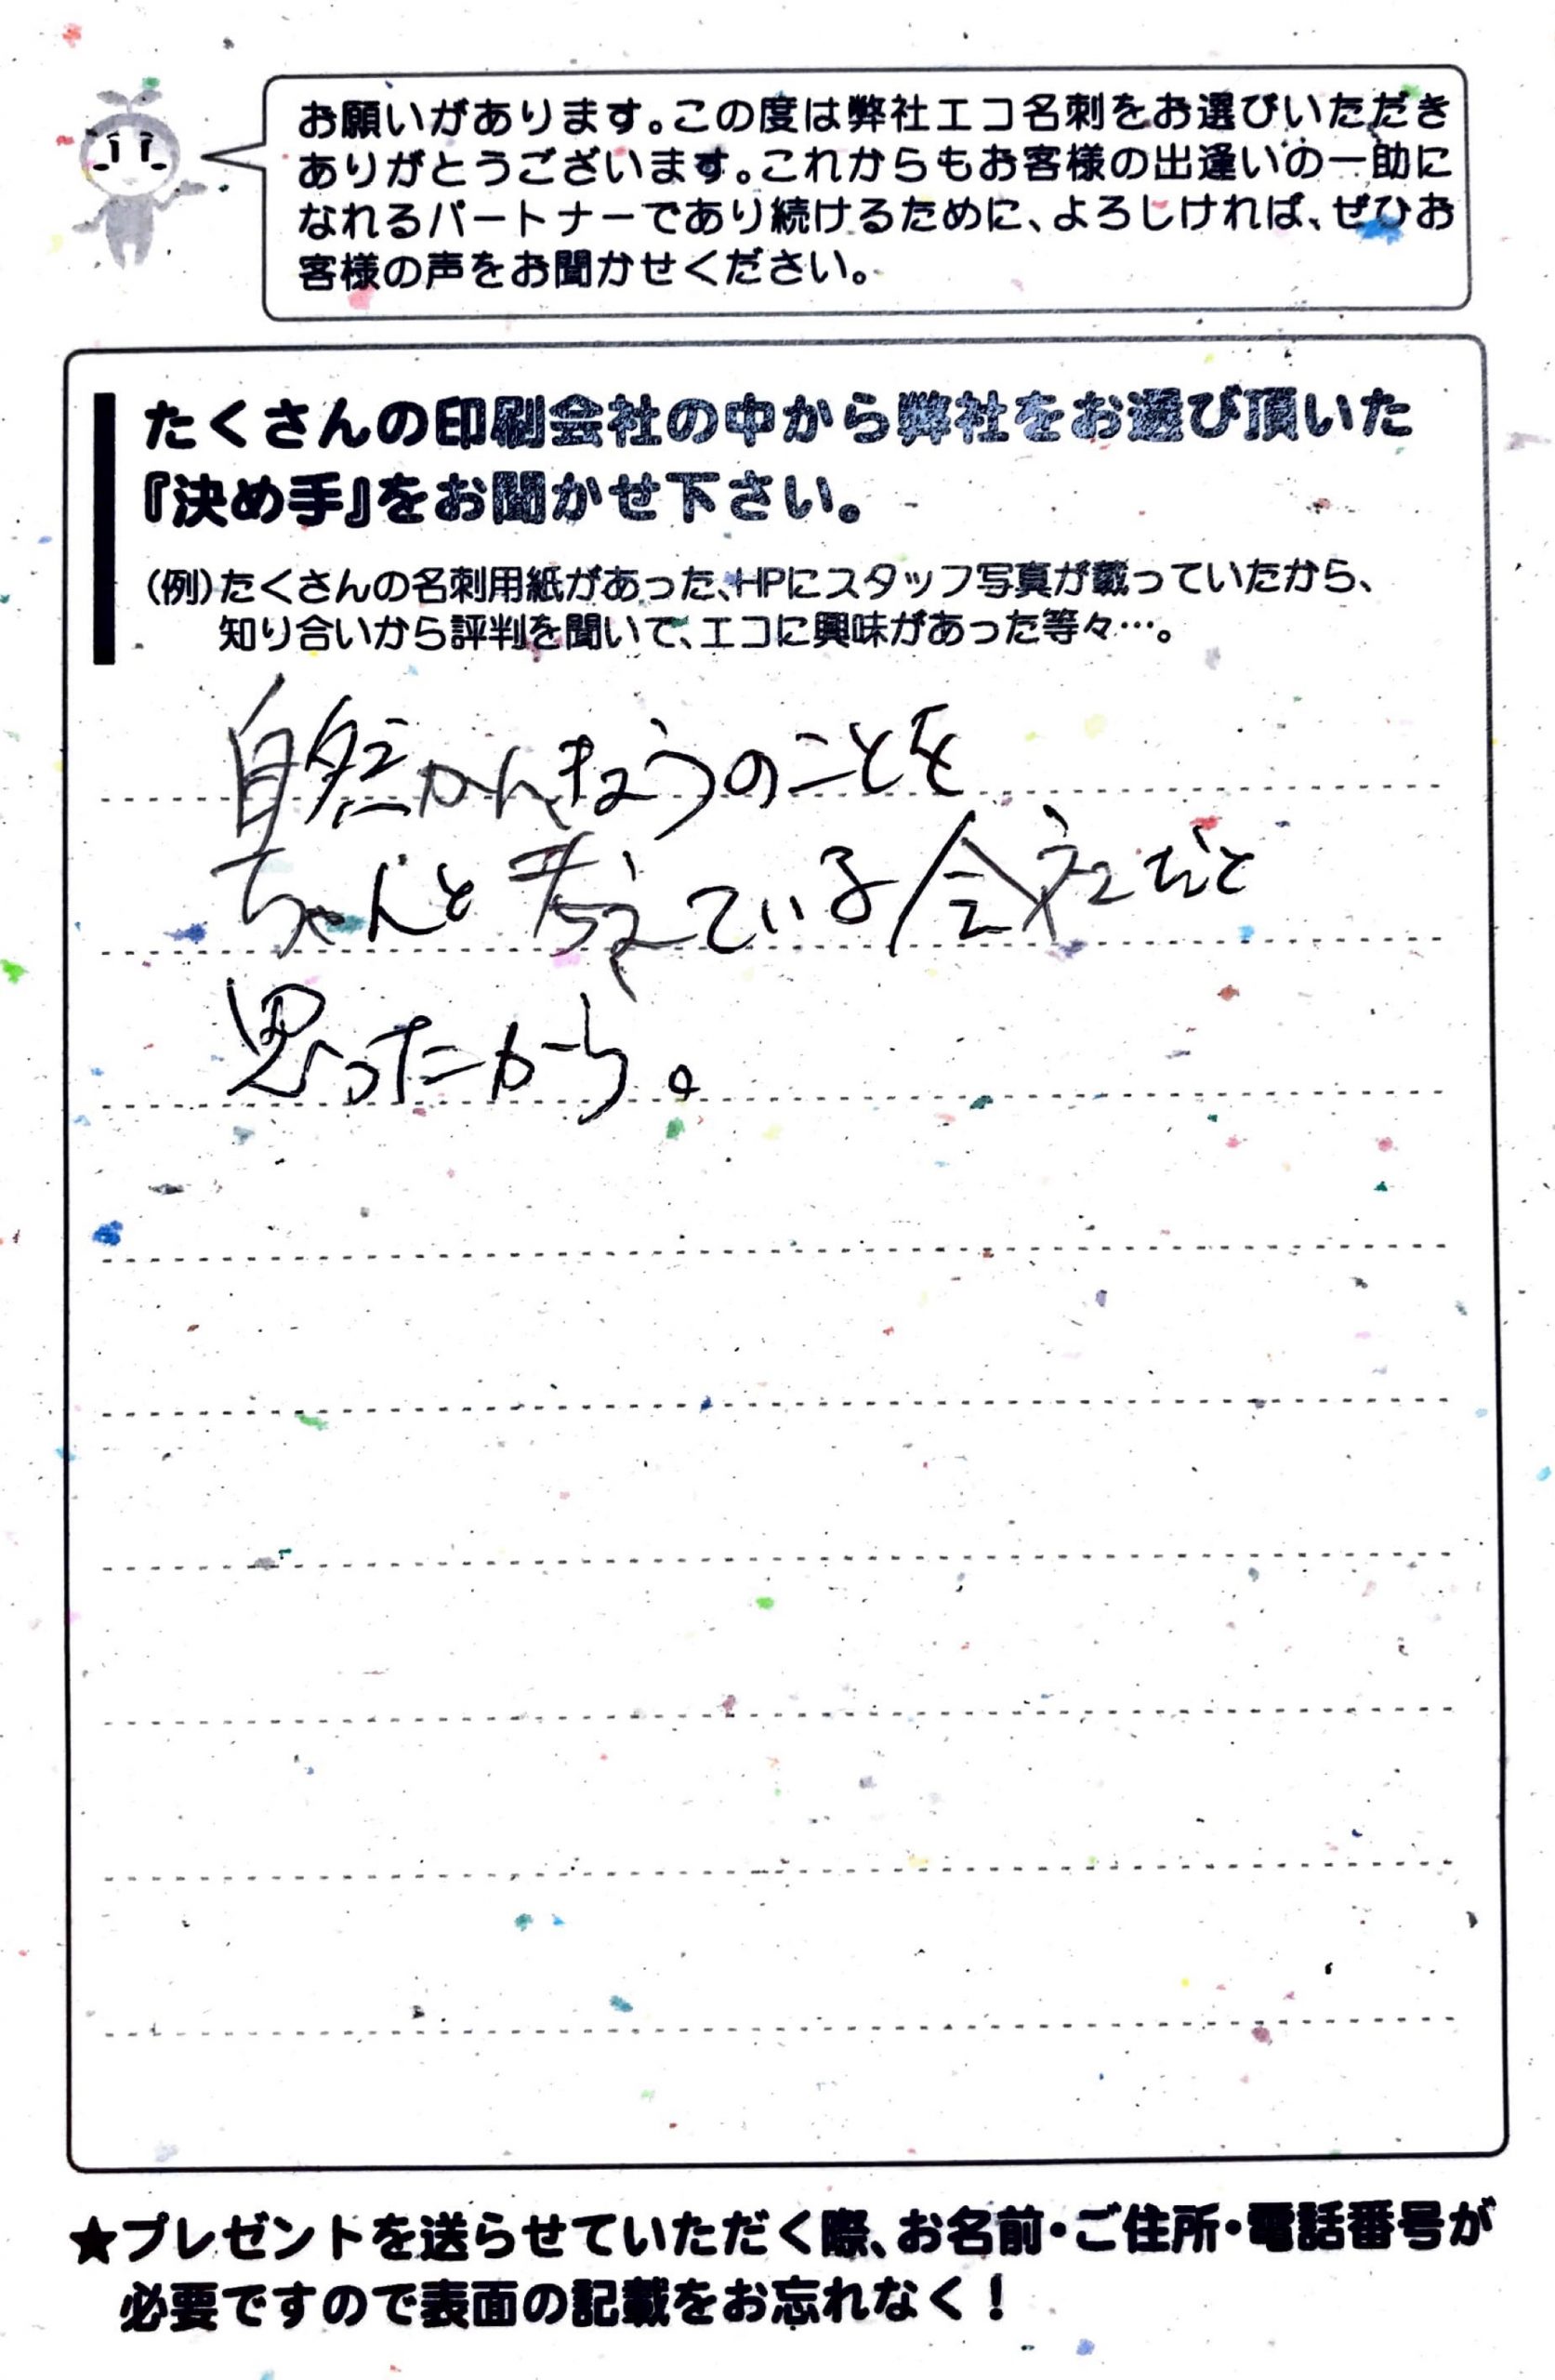 お願いがあります。この度は弊社エコ名刺をお選びいただき
ありがとうございます。これからもお客様の出逢いの一助に
なれるパートナーであり続けるために、よろしければ、ぜひお
客様の声をお聞かせください。
たくさんの印刷会社の中から弊社をお選び頂いた
『決め手』をお聞かせ下さい。
(例)たくさんの名刺用紙があった、HPにスタッフ写真が載っていたから、
知り合いから評判を聞いて、エコに興味があった等々…。
自然かんきょうのことを
ちゃんと考えている会社だと
思ったから。
★プレゼントを送らせていただく際、お名前・ご住所・電話番号が
必要ですので表面の記載をお忘れなく!